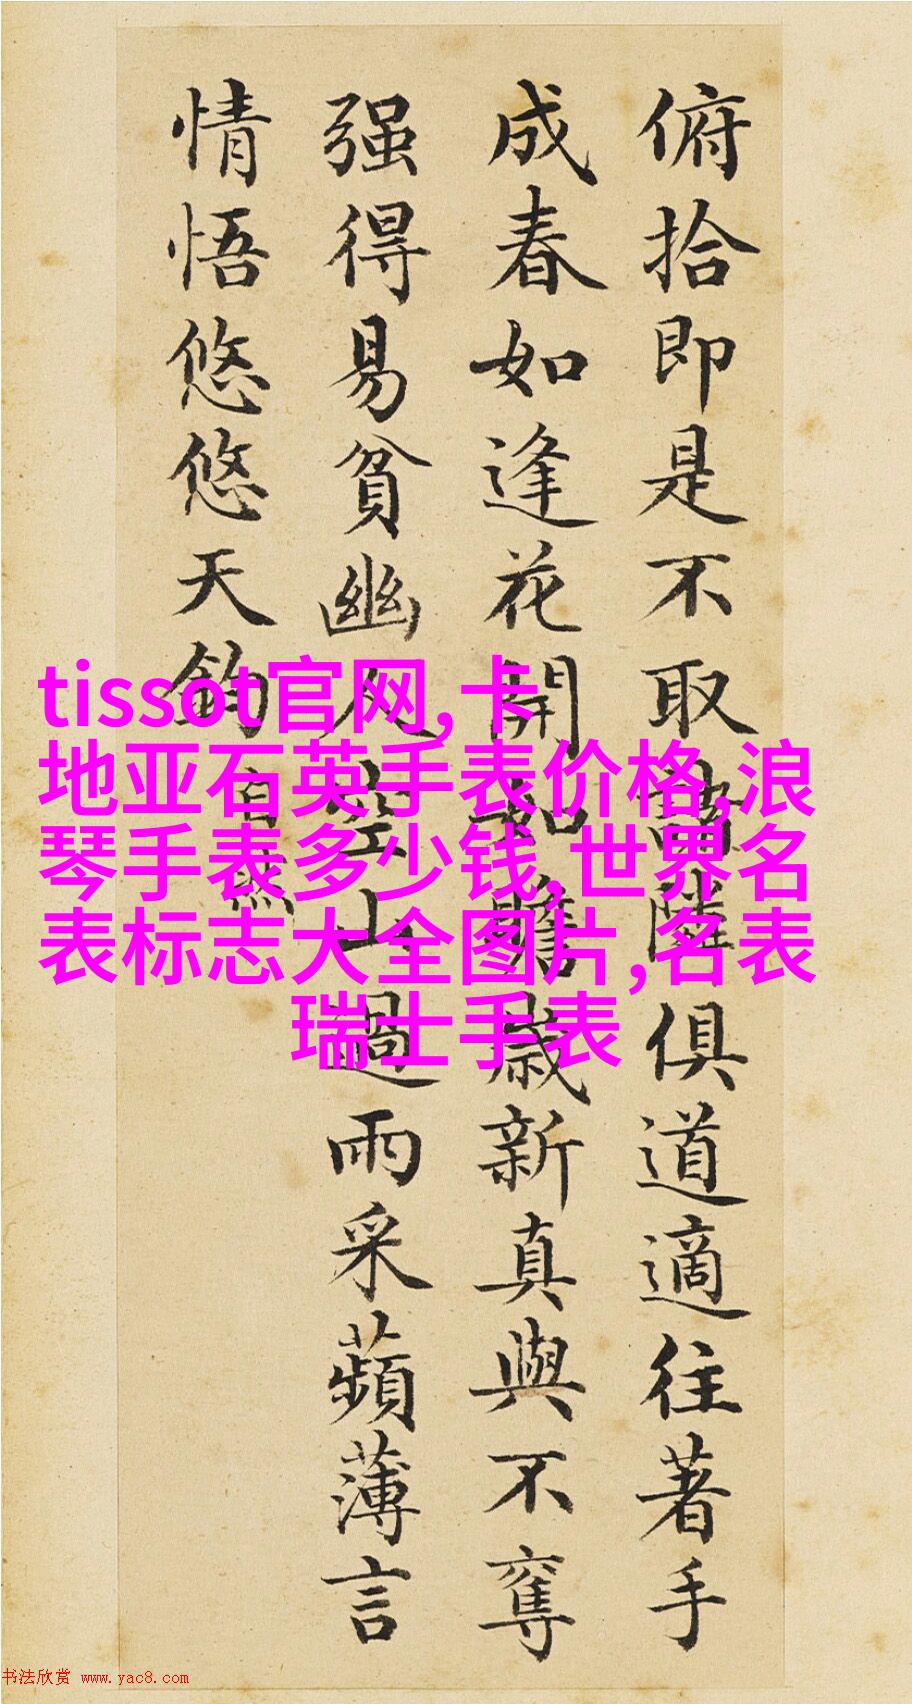 俯拾即是不取諸隣俱道適往著手
成春如逢花開如瞻歲新真與不奪
强得易貧幽人空山過雨采蘋薄言
情悟悠悠天鈞
自然
tissot官网,卡
地亚石英手表价格,浪
琴手表多少钱,世界名
表标志大全图片,名表
瑞士手表
书法欣赏 www.yac8.com